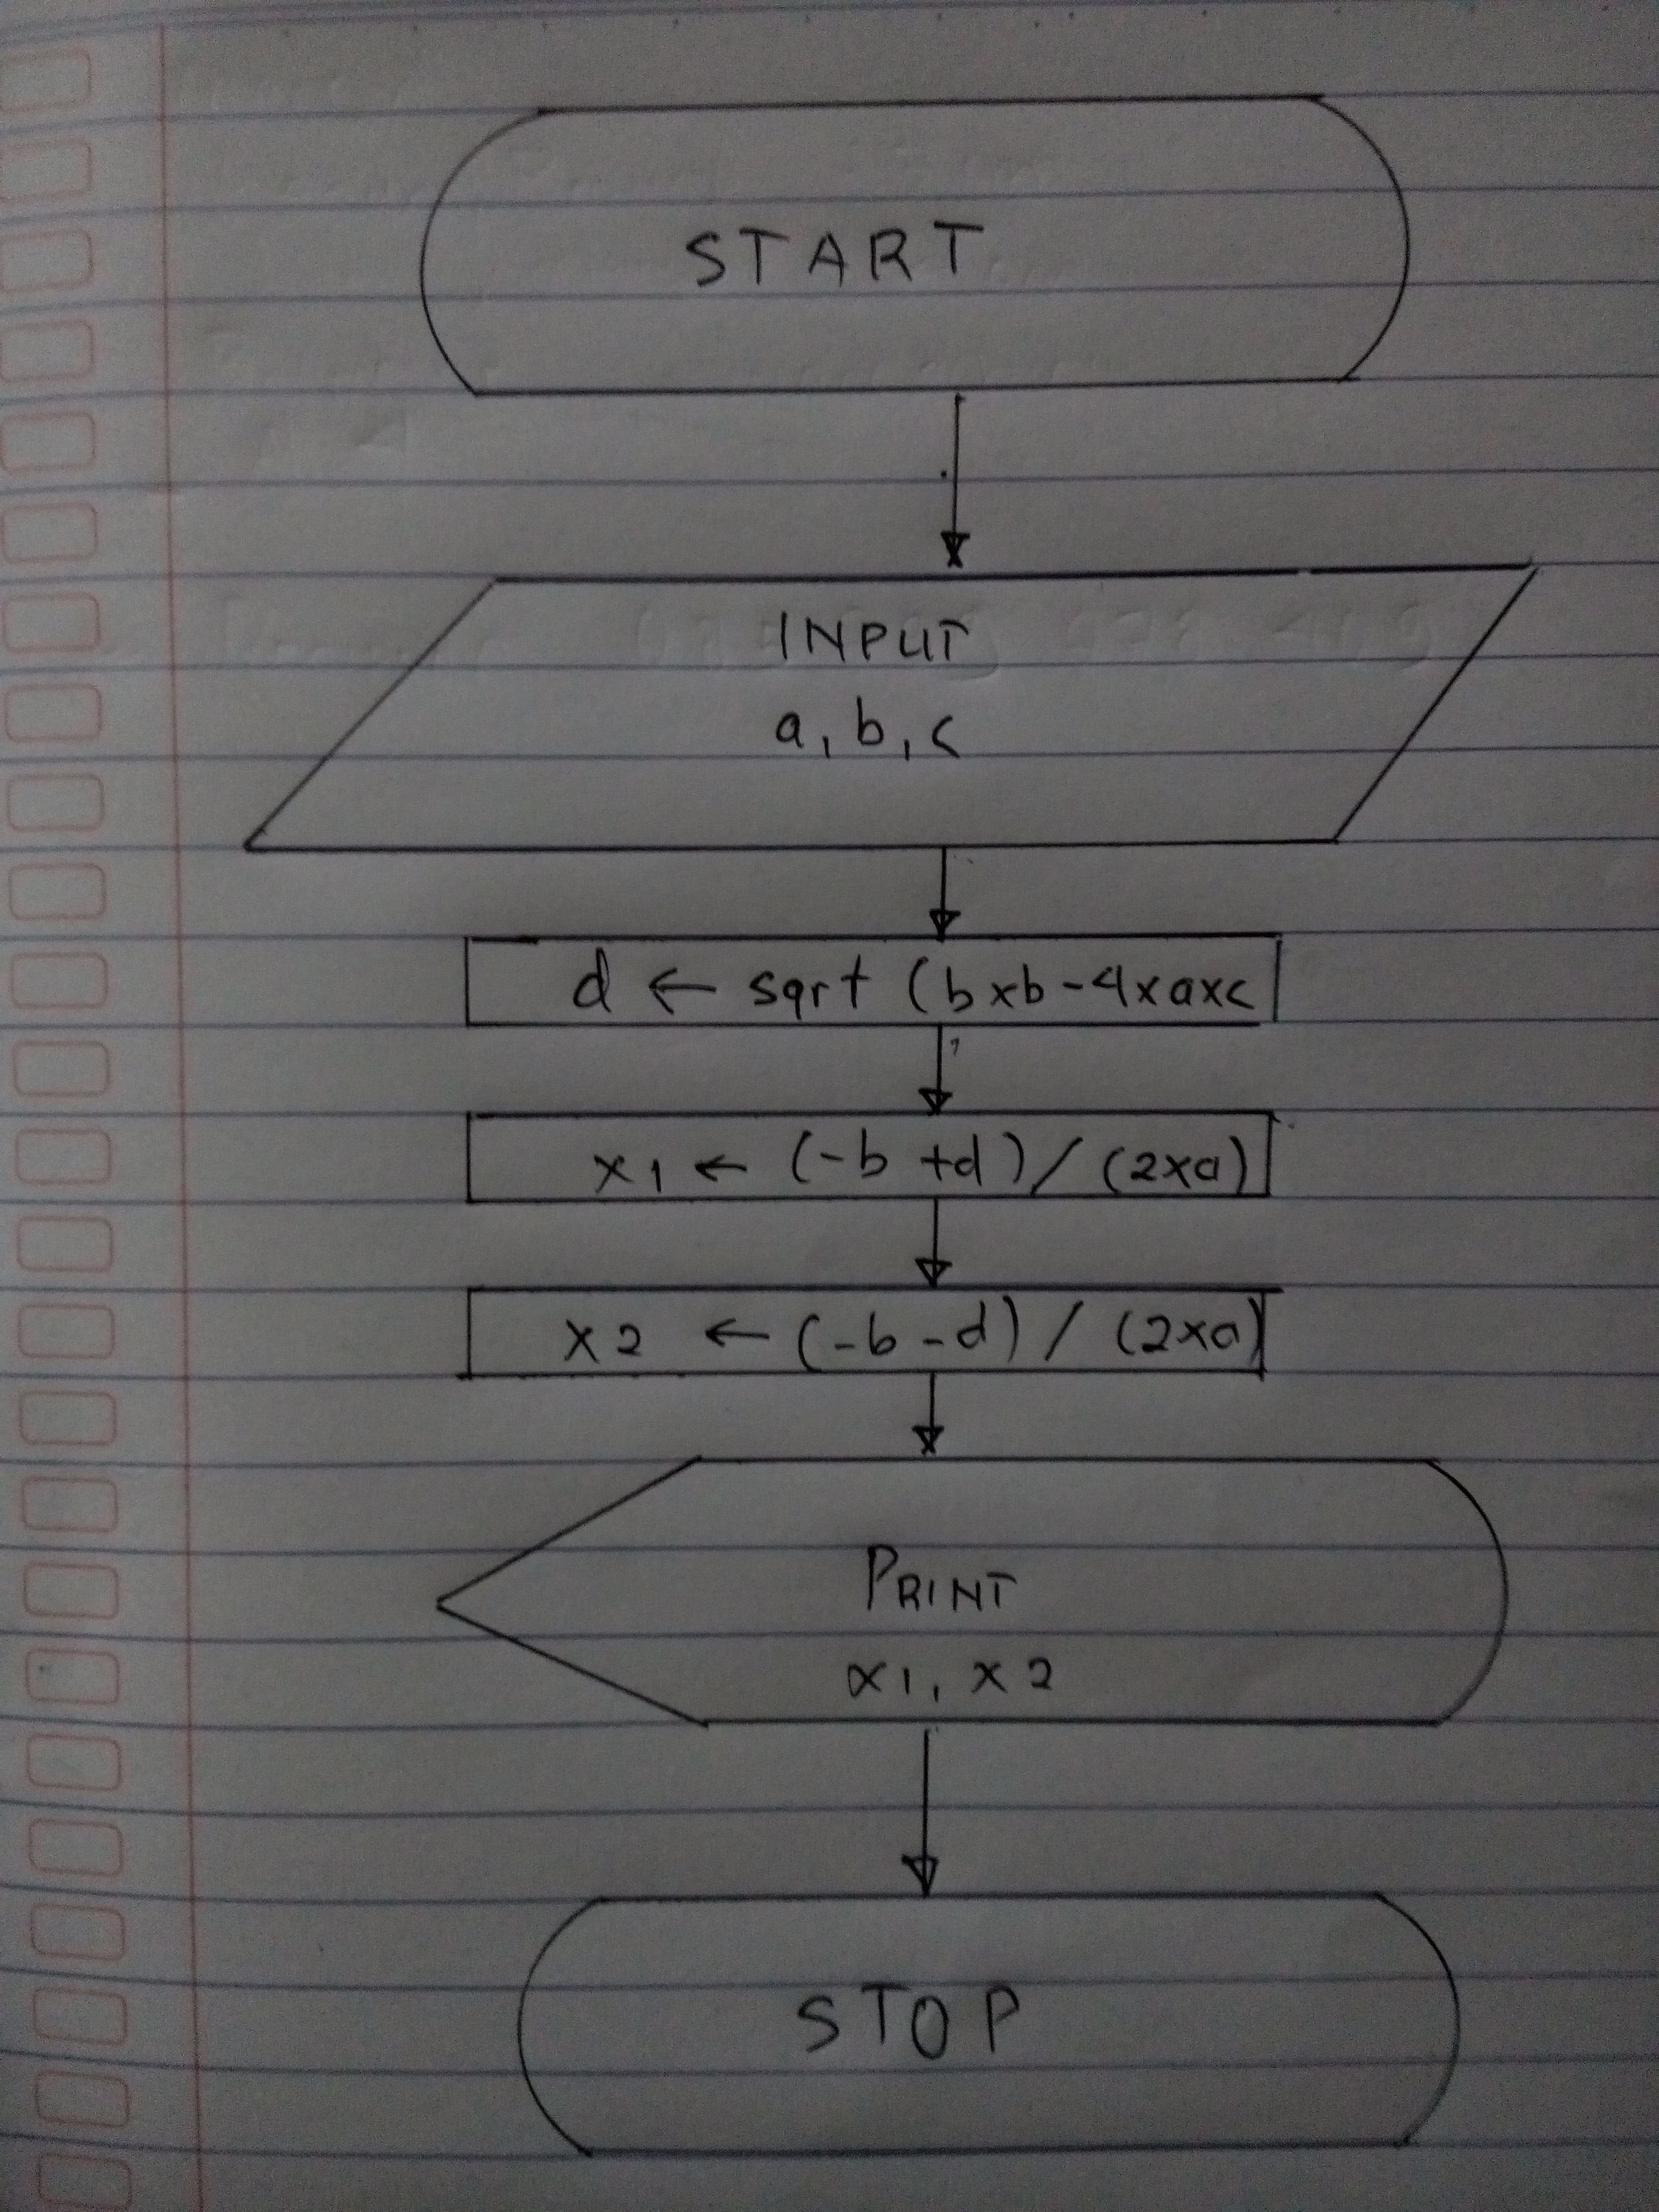 START
INPUT
a, b, c
d ← sqrt (bxb-4xaxc
x1 ← (-b +d) / (2xa)
x2 ← (-b-d) / (2xa)
PRINT
x1, x2
STOP